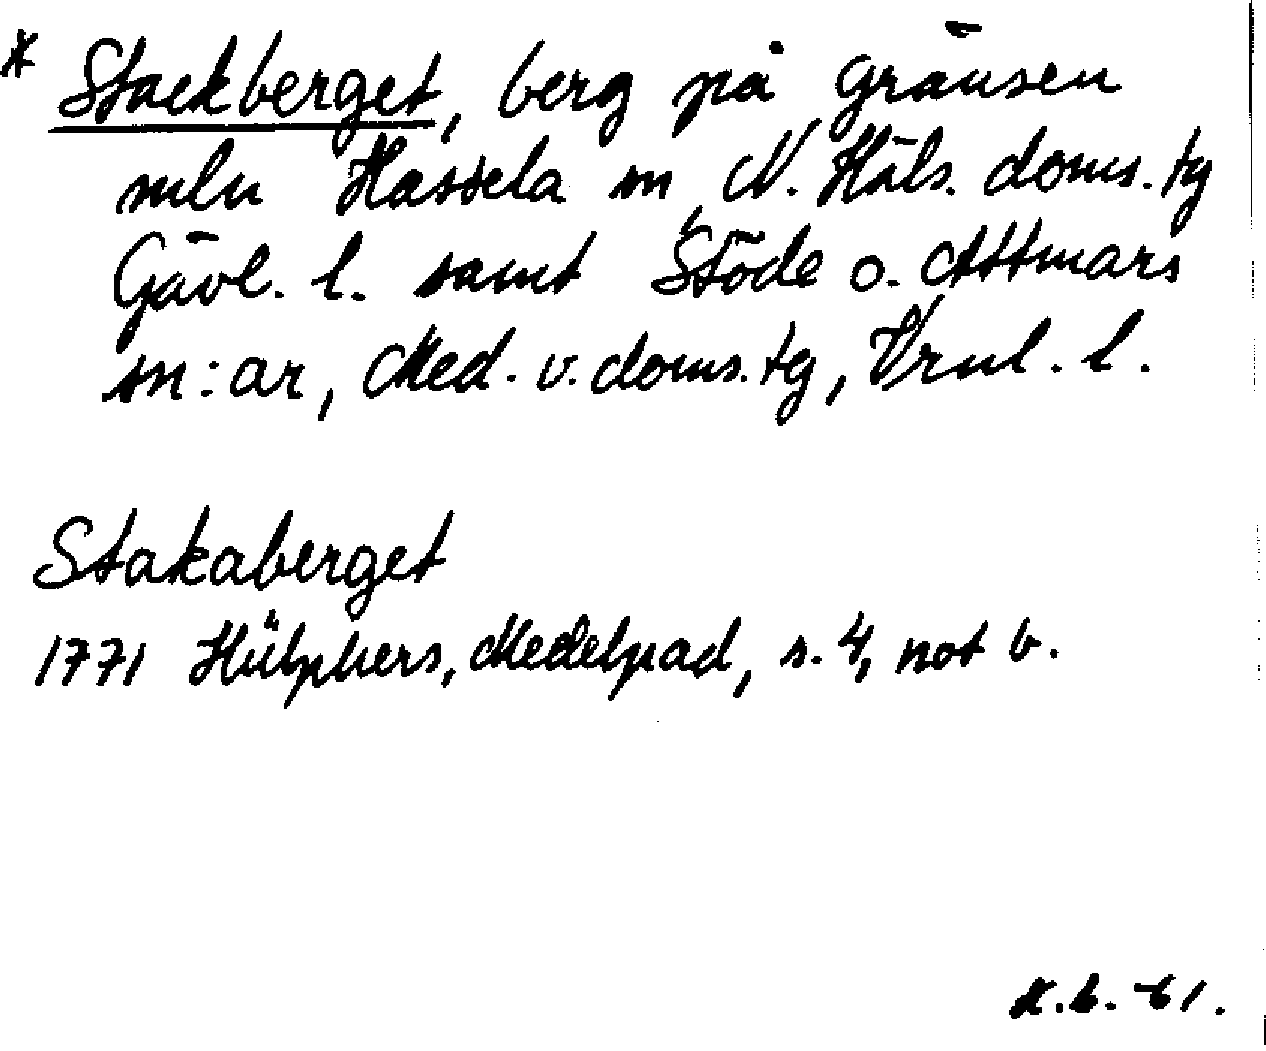 * Stackberget, berg på gränsen
mln Hassela sn, N. Häls. doms. tg
Gävl. l. samt Stöde o. Attmars
sn:ar, Med. v. doms. tg, Vrnl. l.
Stakaberget
1771 Hülphers, Medelpad, s. 4, not b.
K.b. -61.